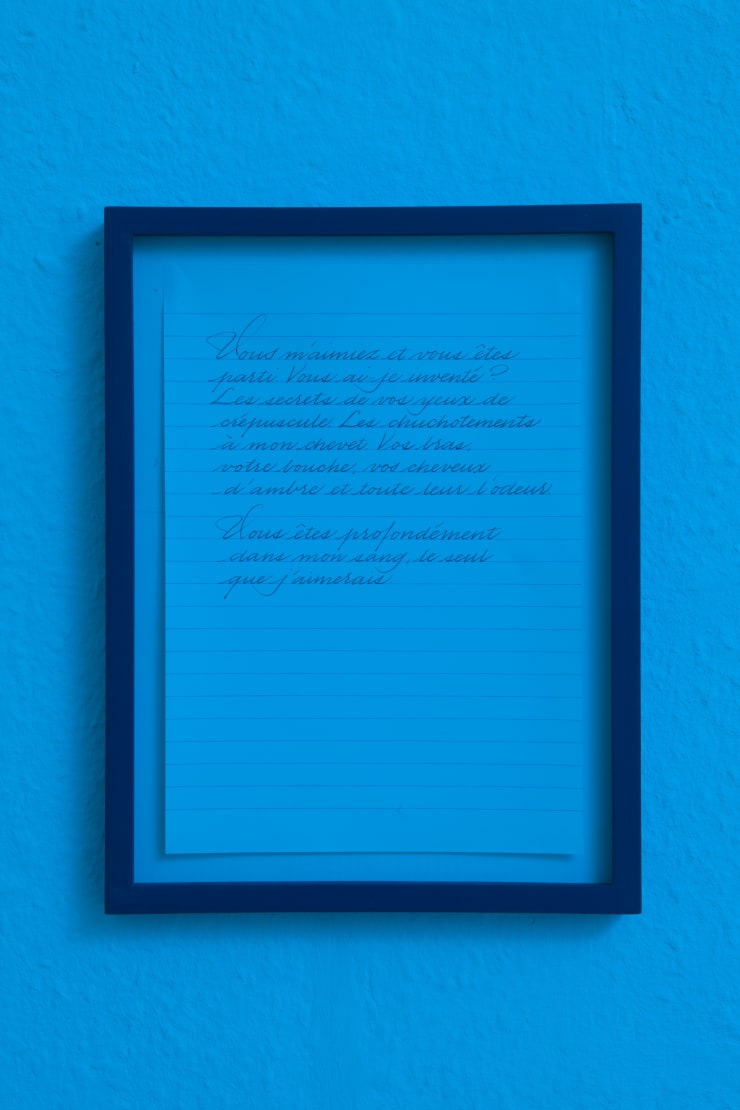 Vous m'aimiez et vous êtes
parti. Vous ai je inventé ?
Les secrets de vos yeux de
crépuscule. Les chuchotements
à mon chevet. Vos bras,
votre bouche, vos cheveux
d'ambre et toute leur l'odeur.
Vous êtes profondément
dans mon sang, le seul
que j'aimerais.